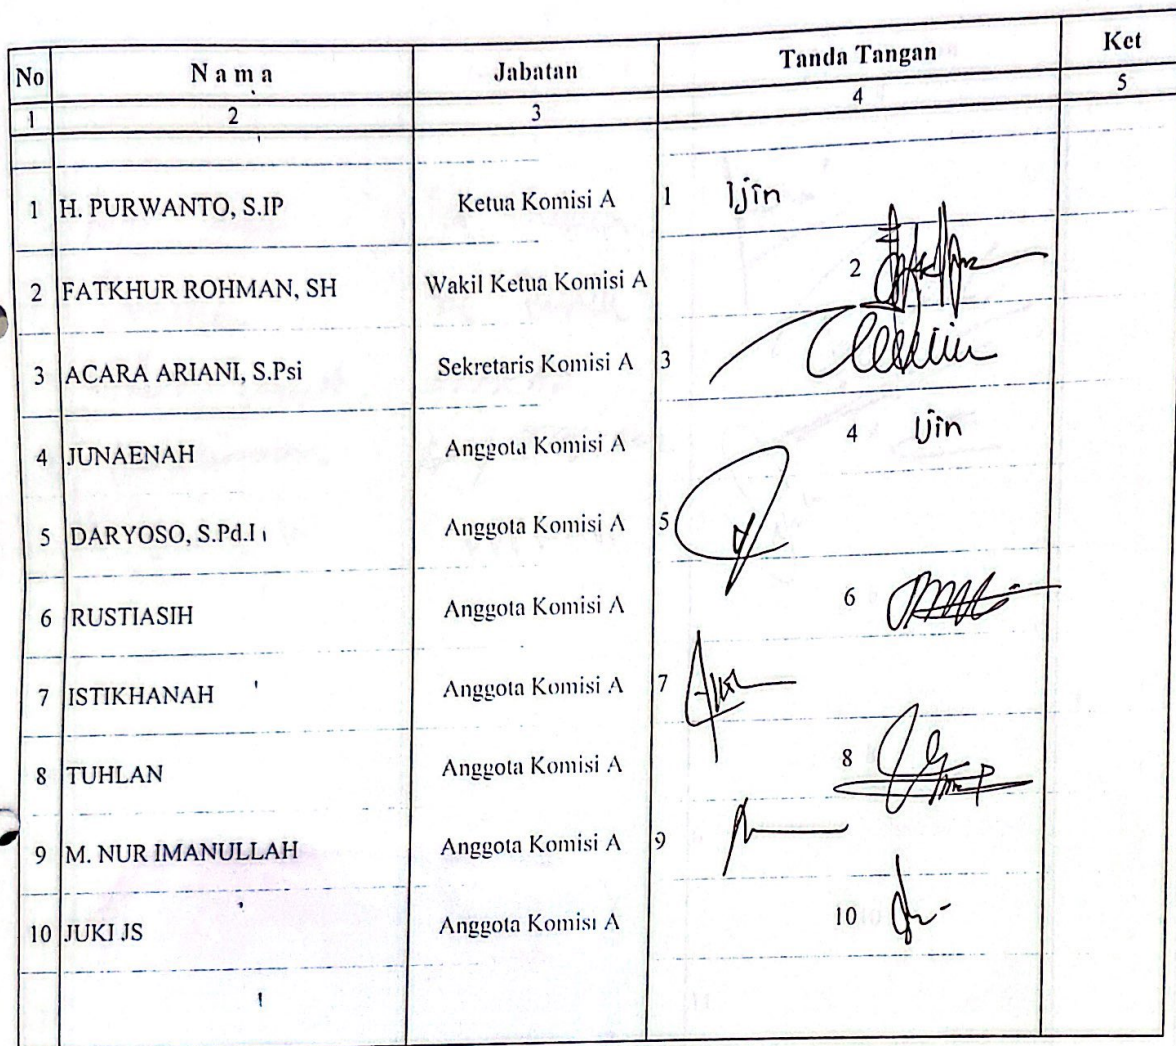 No N a m a Jabatan Tanda Tangan Ket
1 2 3 4 5
1 H. PURWANTO, S.IP Ketua Komisi A 1 Ijin
2 FATKHUR ROHMAN, SH Wakil Ketua Komisi A 2
3 ACARA ARIANI, S.Psi Sekretaris Komisi A 3
4 JUNAENAH Anggota Komisi A 4 Ijin
5 DARYOSO, S.Pd.I Anggota Komisi A 5
6 RUSTIASIH Anggota Komisi A 6
7 ISTIKHANAH Anggota Komisi A 7
8 TUHLAN Anggota Komisi A 8
9 M. NUR IMANULLAH Anggota Komisi A 9
10 JUKI JS Anggota Komisi A 10